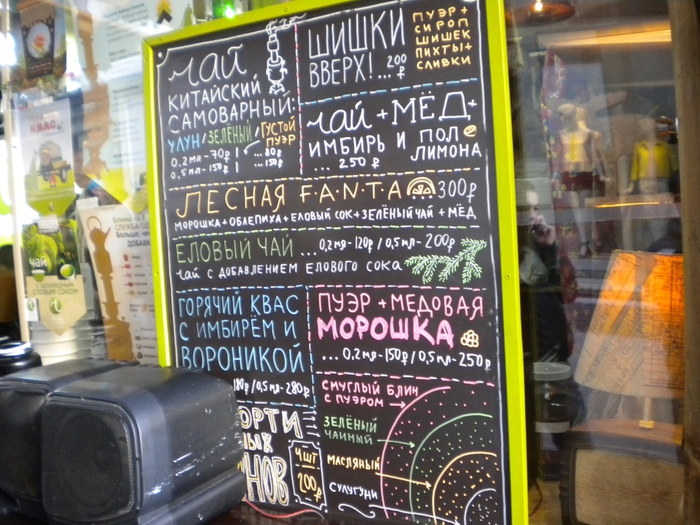 чай
КИТАЙСКИЙ
САМОВАРНЫЙ:
УЛУН/ЗЕЛЁНЫЙ/ГУСТОЙ
ПУЭР
0.2 мл-70₽
... 80₽
0,5 мл-150₽
... 150₽
ШИШКИ
ВВЕРХ!... 200
₽
ПУЭР+
СИРОП
ШИШЕК
ПИХТЫ+
СЛИВКИ
чай+МЁД+
ИМБИРЬ И ПОЛ
... 250 ₽ ЛИМОНА
ЛЕСНАЯ FANTA 300₽
МОРОШКА+ОБЛЕПИХА+ЕЛОВЫЙ СОК+ЗЕЛЁНЫЙ ЧАЙ+МЁД
ЕЛОВЫЙ ЧАЙ ... 0,2 мл-120₽/0,5 мл-200₽
чай С ДОБАВЛЕНИЕМ ЕЛОВОГО СОКА
ГОРЯЧИЙ КВАС
С ИМБИРЁМ И
ВОРОНИКОЙ
80₽/0,5 мл-280₽
ПУЭР+МЕДОВАЯ
МОРОШКА
... 0,2 мл-150₽/0,5 мл-250₽
ОРТИ
ЫХ
НОВ
4 ШТ
200₽
СМУГЛЫЙ БЛИН
С ПУЭРОМ
ЗЕЛЁНЫЙ
ЧАЙНЫЙ
МАСЛЯНЫЙ
СУЛУГУНИ
КВАС
чай
ЕЛОВЫМ СОКОМ